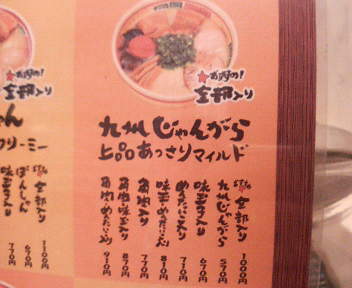 ★お肉の!
全部入り
九州じゃんがら
上品あっさりマイルド
全部入り 1000円
九州じゃんがら 570円
味玉入り 670円
めんたい入り 710円
味玉めんたい入り 810円
角肉入り 770円
角肉味玉入り 870円
角肉めんたい入り 910円
★お肉の!
全部入り
ゃん
クリーミー
全部入り 1100円
ぼんしゃん 670円
味玉入り 770円